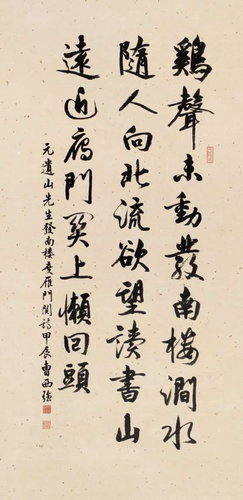 鷄聲未動發南樓澗水
隨人向北流欲望讀書山
遠近雁門關上懶回頭
元遺山先生發南樓度雁門關詩甲辰曹西強